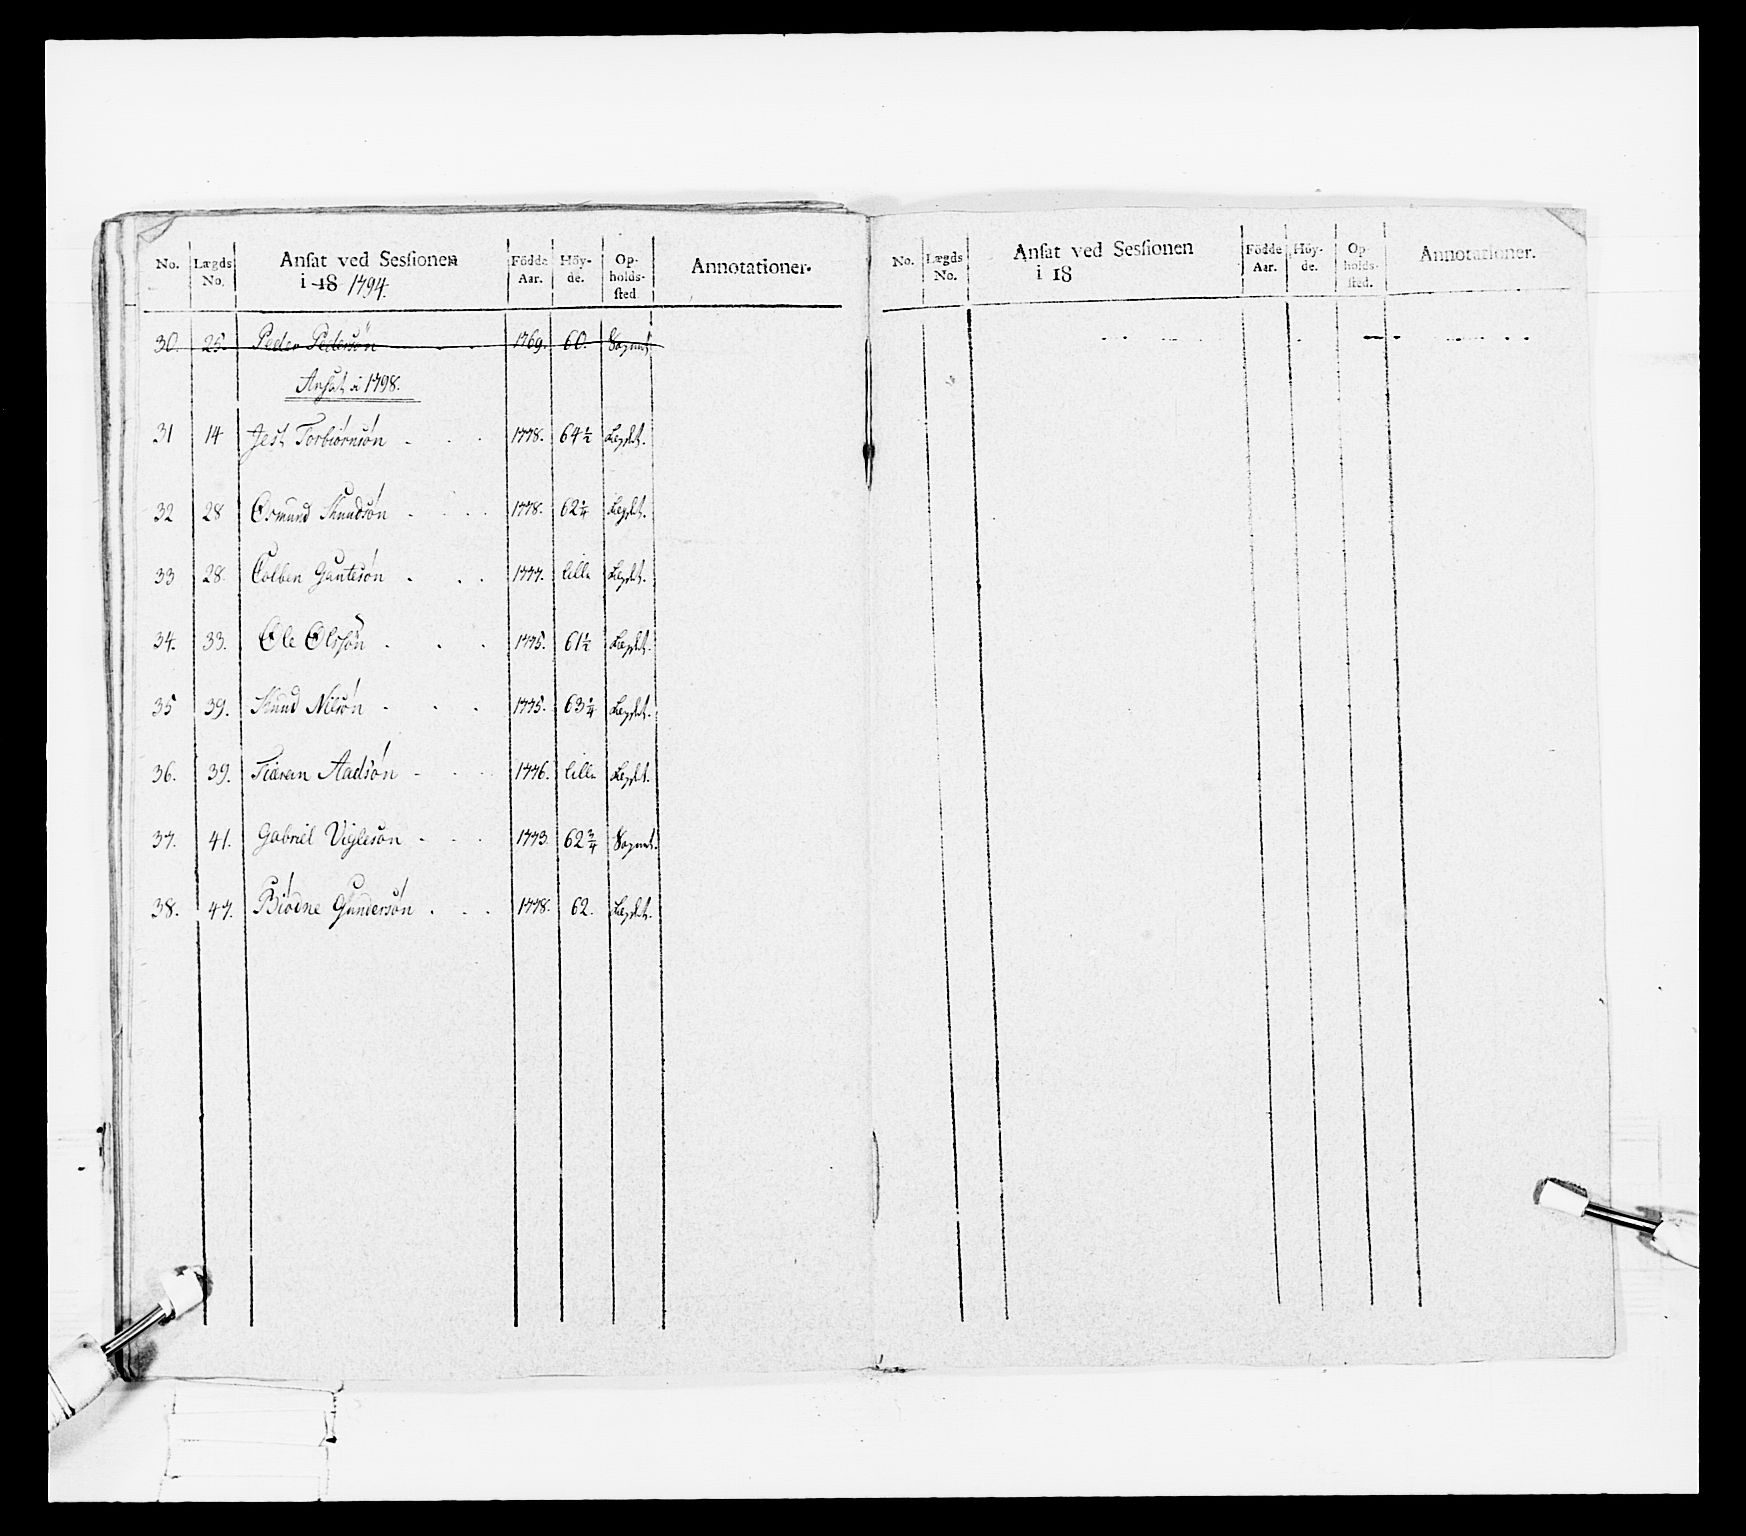 No. Lægds No. Ansat ved Sessionen i 18 1794. Födde Aar. Höy-de. Op-holds-sted Annotationer.
30. 25. Peder Pedersön 1769. 60. Sognet
Ansat i 1798.
31 14 Jest Torbiörnsön 1778. 64½ Legdet.
32 28 Osmund Knudsön 1778. 62¼ Legdet.
33 28. Tolben Guntesön 1777. lille Legdet.
34. 33. Ole Olssön 1775. 61½ Legdet.
35 39. Knud Nilsön 1775. 63¼ Legdet.
36. 39. Tiæran Aadsön 1776. lille Legdet.
37. 41. Gabriel Viglesön 1773. 62¾ Sognet.
38. 47. Biödne Gundersön 1778. 62. Legdet.
No. Lægds No. Ansat ved Sessionen i 18 Födde Aar. Höy-de. Op-holds-sted. Annotationer.